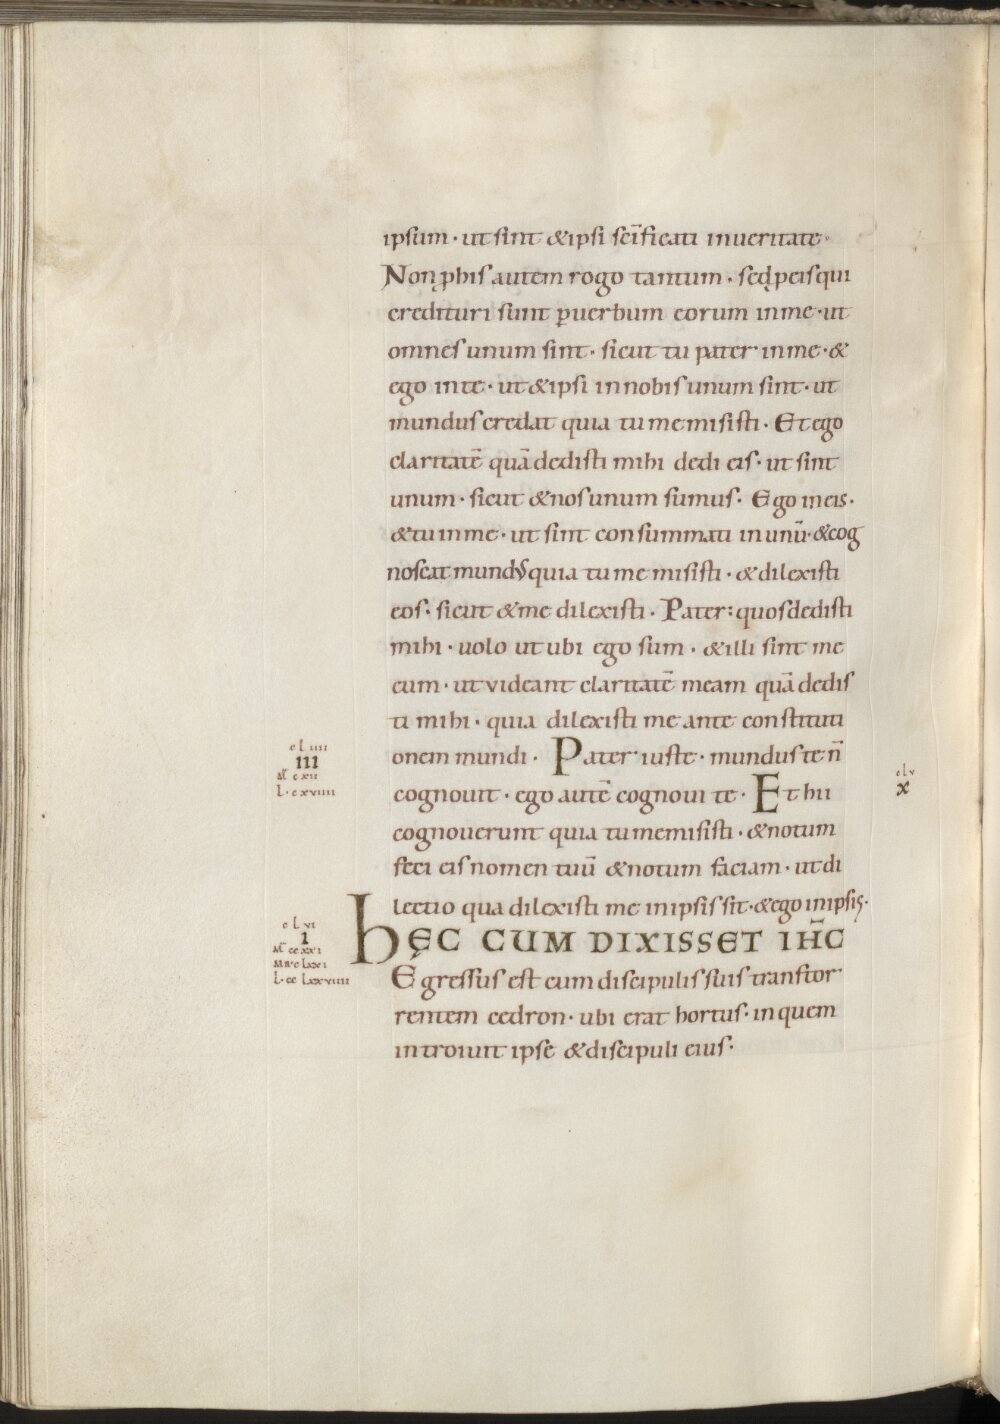 ipsum · ut sint & ipsi scīficati in ueritate ·
Non ꝓ his autem rogo tantum · sed ꝓ eis qui
credituri sunt ꝑ uerbum eorum in me · ut
omnes unum sint · sicut tu pater in me · &
ego in te · ut & ipsi in nobis unum sint · ut
mundus credat quia tu me misisti · Et ego
claritatē quā dedisti mihi dedi eis · ut sint
unum · sicut & nos unum sumus · Ego in eis ·
& tu in me · ut sint consummati in unū · & cog
noscat mundus quia tu me misisti · & dilexisti
eos · sicut & me dilexisti · Pater : quos dedisti
mihi · uolo ut ubi ego sum · & illi sint me
cum · ut videant claritatē meam quā dedis
ti mihi · quia dilexisti me ante constituti
onem mundi · Pater iuste · mundus te n̄
cognouit · ego autē cognoui te · Et hii
cognouerunt quia tu me misisti · & notum
feci eis nomen tuū & notum faciam · ut di
lectio qua dilexisti me in ipsis sit · & ego in ipsis ·
hęc CUM DIXISSET IHC̄
Egressus est cum discipulis suis trans tor
rentem cedron · ubi erat hortus · in quem
introiuit ipse & discipuli eius ·
cLiiii
iii
M̄ cxii
L · cxviiii
cLv
x
cLvi
i
M̄ ccxxi
MR · cLxxi
L · ccLxxviiii